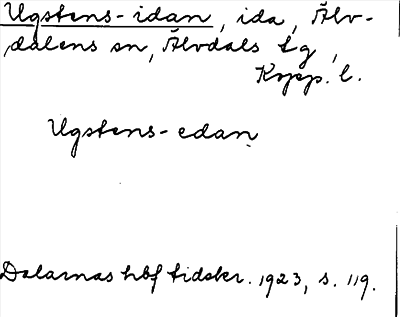 Ugstens-idan, ida, Älv-
dalens sn, Älvdals tg,
Kopp. l.
Ugstens-edan
Dalarnas hbf tidskr. 1923, s. 119.